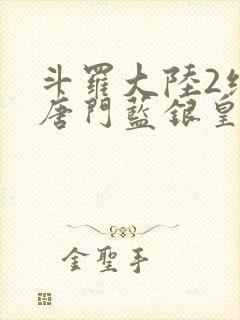 斗羅大陸2
唐門藍銀皇
金聖手